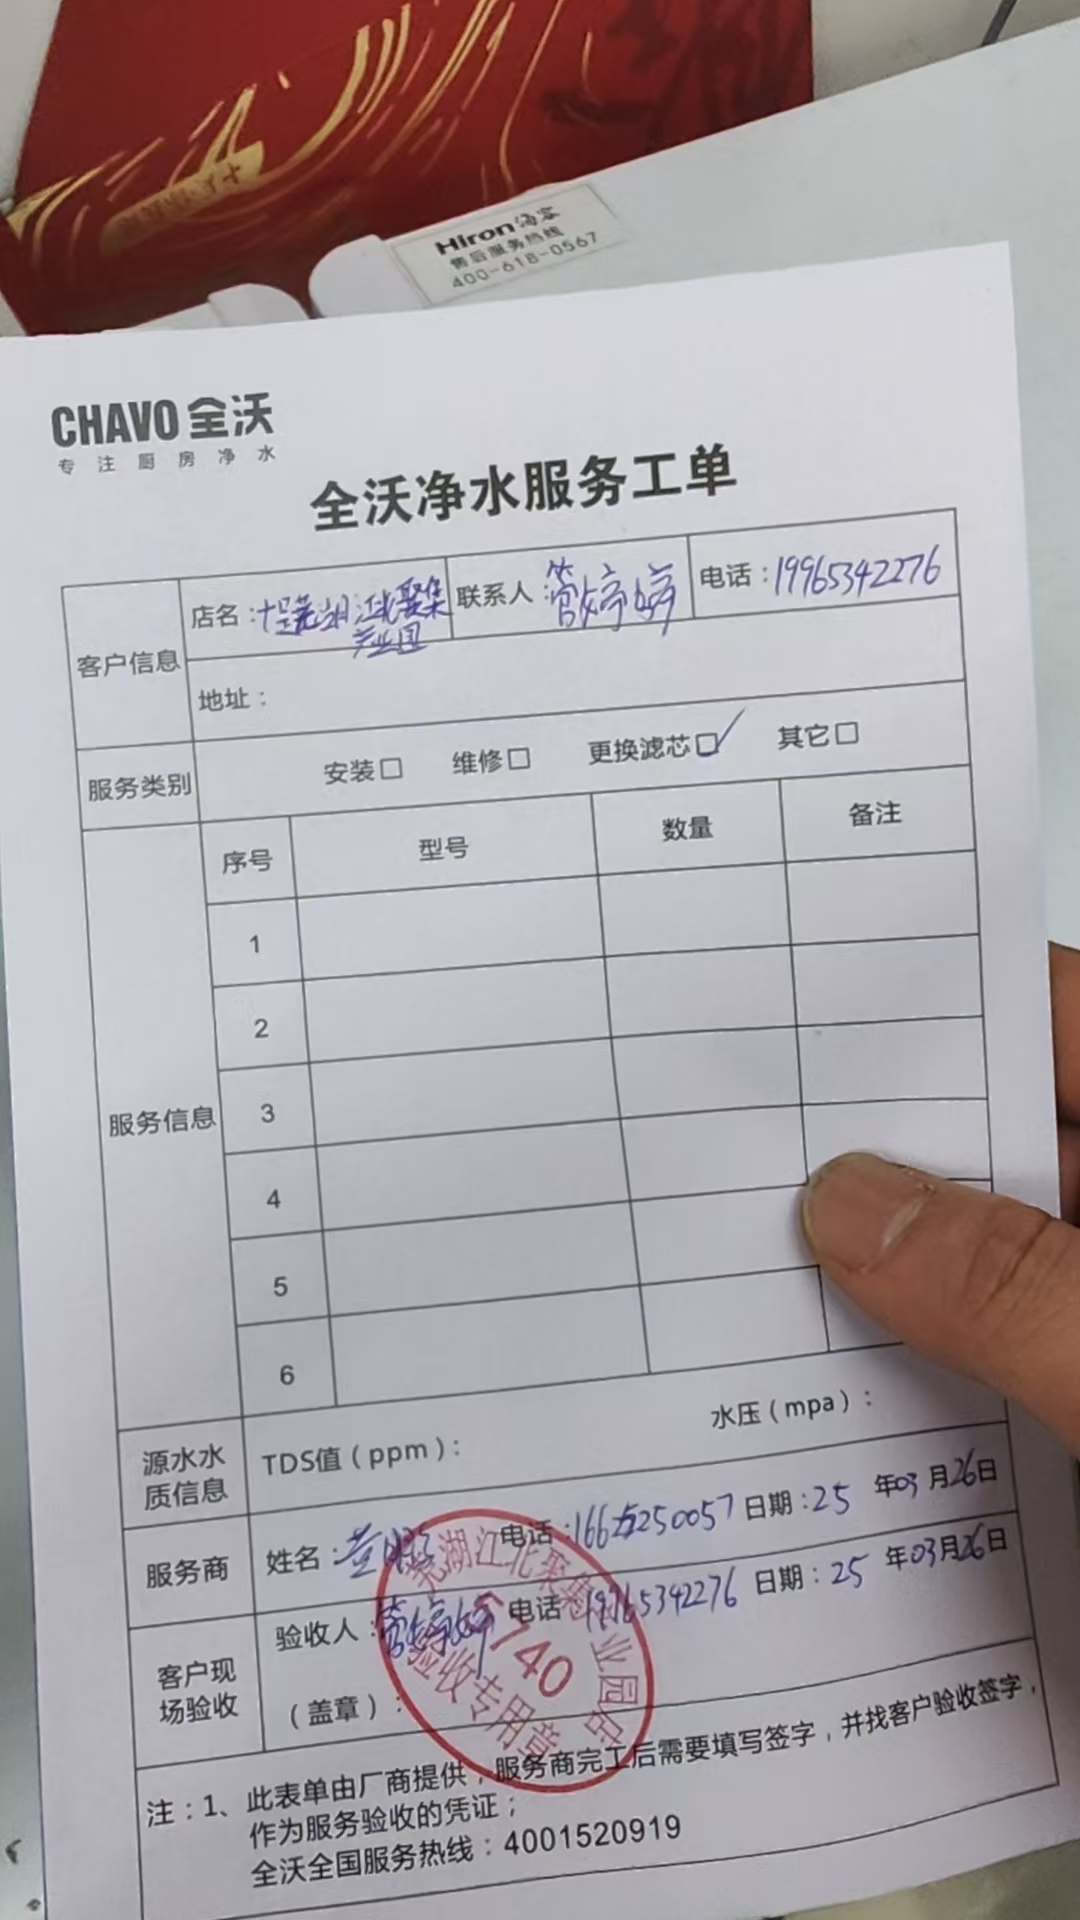 Hiron海容
售后服务热线
400-618-0567
CHAVO 全沃
专注厨房净水
全沃净水服务工单
客户信息
店名：芜湖江北聚集
产业园
联系人：管婷婷
电话：19965342276
地址：
服务类别
安装□ 维修□ 更换滤芯□✓ 其它□
服务信息
序号 型号 数量 备注
1
2
3
4
5
6
源水水
质信息
TDS值（ppm）： 水压（mpa）：
服务商
姓名：黄 电话：16675250057 日期：25 年03月26日
客户现
场验收
验收人：管婷婷 电话：19965342276 日期：25 年03月26日
（盖章）：
芜湖江北聚集产业园店
5740
验收专用章
注：1、此表单由厂商提供，服务商完工后需要填写签字，并找客户验收签字，
作为服务验收的凭证；
全沃全国服务热线：4001520919